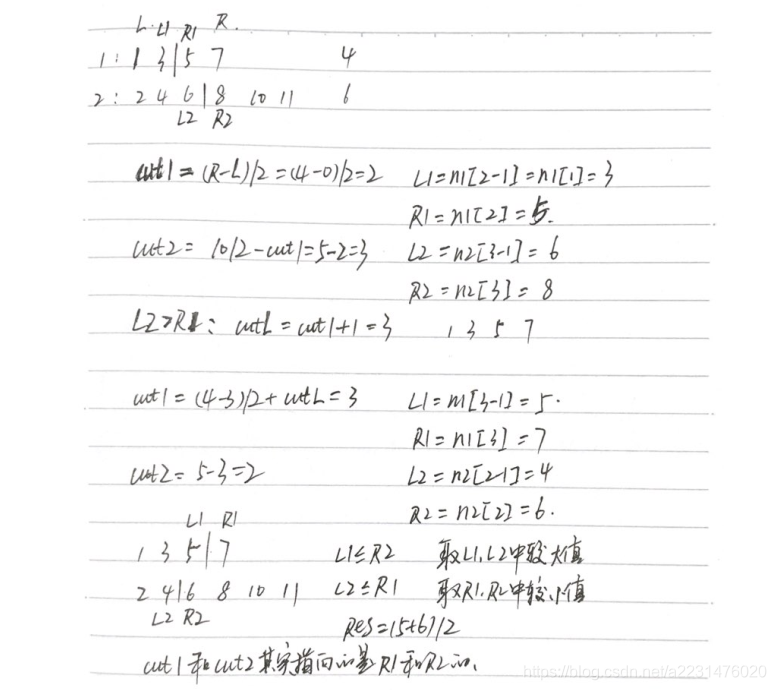 L L1 R1 R.
1: 1 3|5 7 4
2: 2 4 6|8 10 11 6
L2 R2
cut1 = (R-L)/2 = (4-0)/2 = 2 L1 = n1[2-1] = n1[1] = 3
R1 = n1[2] = 5.
cut2 = 10/2-cut1 = 5-2 = 3 L2 = n2[3-1] = 6
R2 = n2[3] = 8
L2>R1: cutL = cut1+1 = 3 1 3 5 7
cut1 = (4-3)/2 + cutL = 3 L1 = n1[3-1] = 5.
R1 = n1[3] = 7
cut2 = 5-3 = 2 L2 = n2[2-1] = 4
R2 = n2[2] = 6.
L1 R1
1 3 5|7 L1≤R2 取L1,L2中较大值
2 4|6 8 10 11 L2≤R1 取R1,R2中较小值
L2 R2
Res = (5+6)/2
cut1和cut2其实指向的是R1和R2的.
https://blog.csdn.net/a2231476020